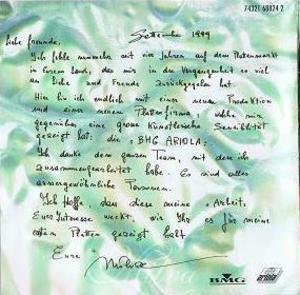 74321 68024 2
Settembre 1999
Liebe Freunde,
Ich fehle nunmehr seit vier Jahren auf dem Plattenmarkt
in Eurem Land, das mir in der Vergangenheit so viel
an Liebe und Freude zurückgegeben hat
Hier bin ich endlich mit einer neuen Produktion
und einer neuen Plattenfirma, welche mir
gegenüber eine grosse künstlerische Sensibilität
gezeigt hat: die "BMG ARIOLA."
Ich danke dem ganzen Team, mit dem ich
zusammengearbeitet habe. Es sind alles
aussergewöhnliche Personen.
Ich hoffe, dass diese meine Arbeit,
Euer Interesse weckt, wie Ihr es für meine
ersten Platten gezeigt habt
Eure
Milva
BMG
ARIOLA